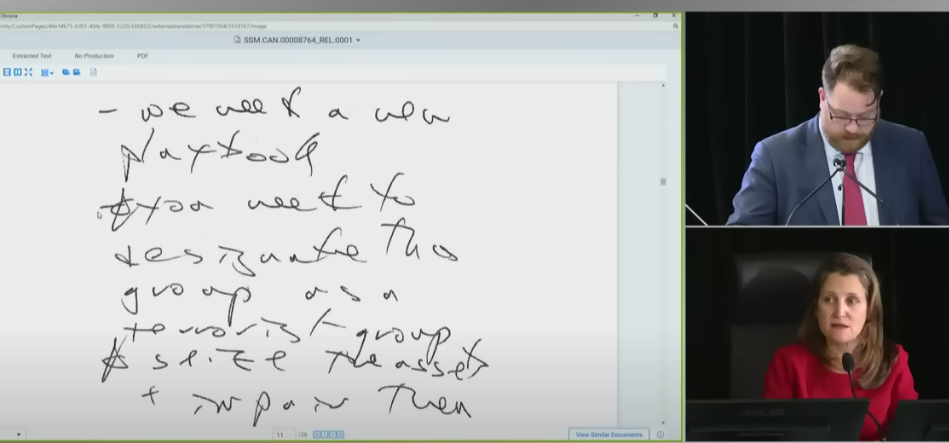 Chrome
SSM.CAN.00008764_REL.0001
Extracted Text No Production PDF
- we need a new
playbook
you need to
designate the
group as a
terrorist group
& seize the assets
+ impair them
11 /28
View Similar Documents